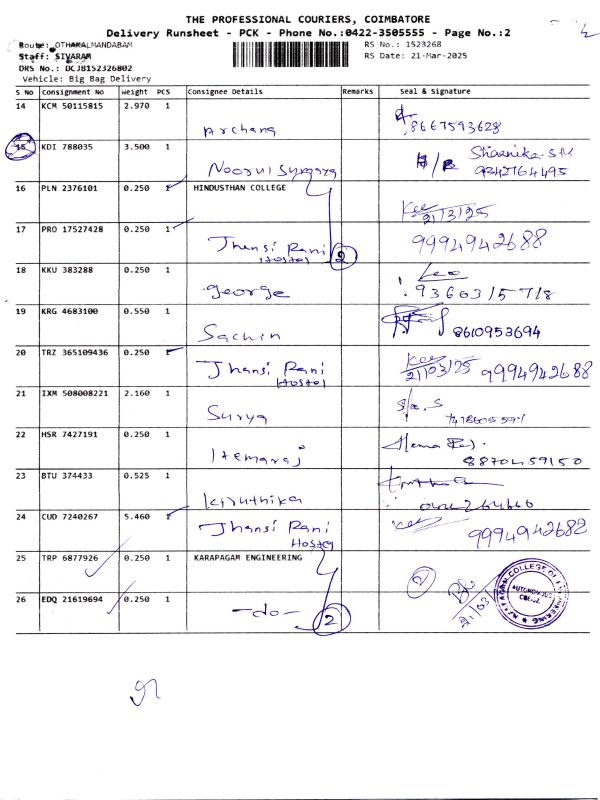 THE PROFESSIONAL COURIERS, COIMBATORE
Delivery Runsheet - PCK - Phone No.:0422-3505555 - Page No.:2
Route: OTHAKALMANDABAM
RS No.: 1523268
Staff: SIVARAM
RS Date: 21-Mar-2025
DRS No.: DCJB152326802
Vehicle: Big Bag Delivery
S No Consignment No Weight PCS Consignee Details Remarks Seal & Signature
14 KCM 50115815 2.970 1
Archana 8667593628
15 KDI 788035 3.500 1
Noorul 9342764495
16 PLN 2376101 0.250 1 HINDUSTHAN COLLEGE
21/3/25
17 PRO 17527428 0.250 1
Jhansi Rani 9994942688
Hostel 2
18 KKU 383288 0.250 1 Leo
george
19 KRG 4683100 0.550 1
Sachin 8610953694
20 TRZ 365109436 0.250 1
Jhansi Rani 21/03/25 9994942688
Hostel
21 IXM 508008221 2.160 1
Surya
22 HSR 7427191 0.250 1
Hemaraj 8870459150
23 BTU 374433 0.525 1
Kiruthika
24 CUD 7240267 5.460 1
Jhansi Rani 9994942682
Hostel
25 TRP 6877926 0.250 1 KARAPAGAM ENGINEERING
2
26 EDQ 21619694 0.250 1
-do- 2
KARPAGAM COLLEGE OF ENGINEERING
AUTONOMOUS